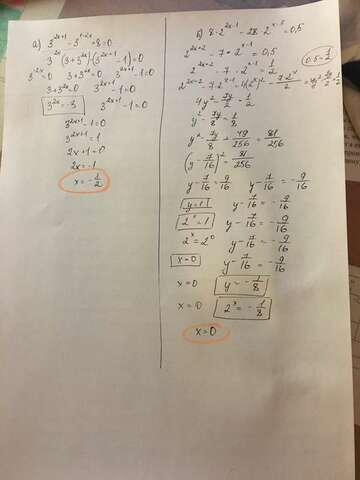 а) 3^{2x+1} - 3^{1-2x} + 8 = 0
3^{-2x} (3 + 3^{2x}) (3^{2x+1} - 1) = 0
3^{-2x} = 0   3 + 3^{2x} = 0   3^{2x+1} - 1 = 0
3 + 3^{2x} = 0   3^{2x+1} - 1 = 0
3^{2x} = -3   3^{2x+1} - 1 = 0
3^{2x+1} - 1 = 0
3^{2x+1} = 1
2x + 1 = 0
2x = -1
x = -\frac{1}{2}
2^{2x+2} - 7 \cdot 2^{x-1} = 0,5
0.5 = \frac{1}{2}
2^{2x+2} - 7 \cdot 2^{x-1} = \frac{1}{2}
4y^2 - \frac{7y}{2} = \frac{1}{2}
y^2 - \frac{7y}{8} = \frac{1}{8}
y^2 - \frac{7y}{8} + \frac{49}{256} = \frac{81}{256}
(y - \frac{7}{16})^2 = \frac{81}{256}
y - \frac{7}{16} = \frac{9}{16}   y - \frac{7}{16} = -\frac{9}{16}
y = 1   y - \frac{7}{16} = -\frac{9}{16}
2^x = 1   y - \frac{7}{16} = -\frac{9}{16}
2^x = 2^0   y - \frac{7}{16} = -\frac{9}{16}
x = 0   y - \frac{7}{16} = -\frac{9}{16}
x = 0   y = -\frac{1}{8}
x = 0   2^x = -\frac{1}{8}
x = 0